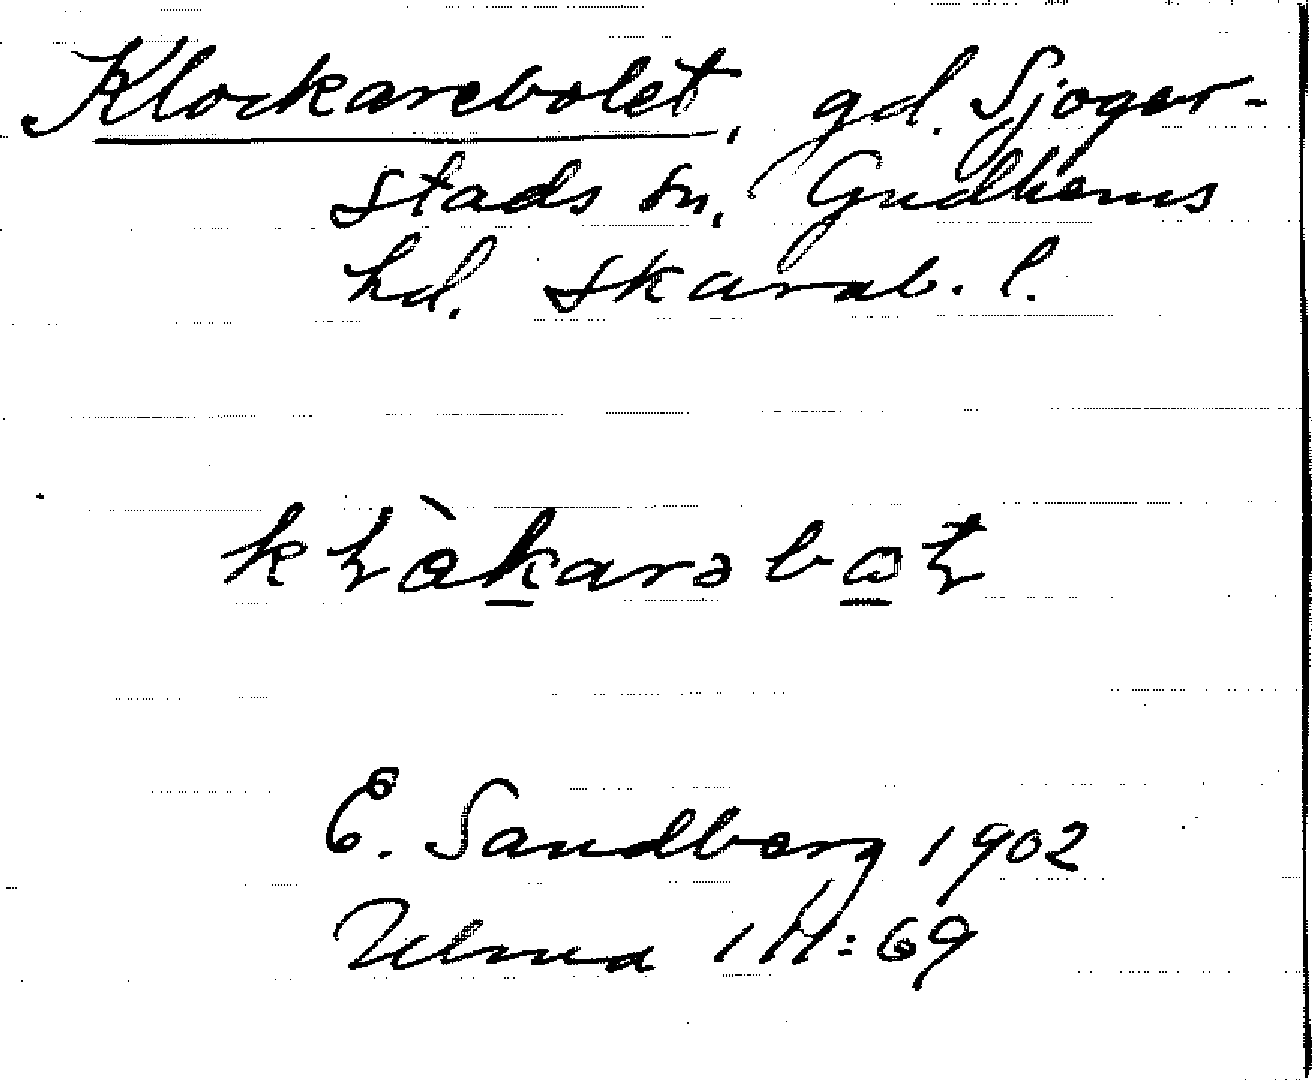 Klockarebolet, gd. Sjoger-
stads sn, Gudhems
hd. Skarab. l.
E. Sandberg 1902
Ulma 1 H: 69